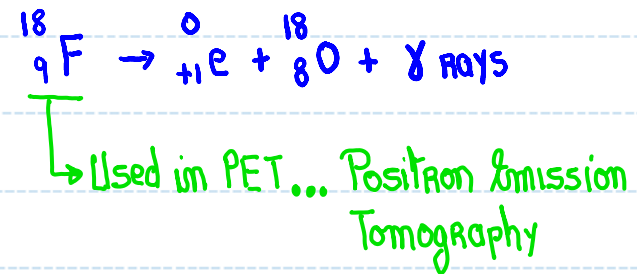 ¹⁸₉F → ⁰₊₁e + ¹⁸₈O + γ rays
Used in PET... Positron Emission
Tomography